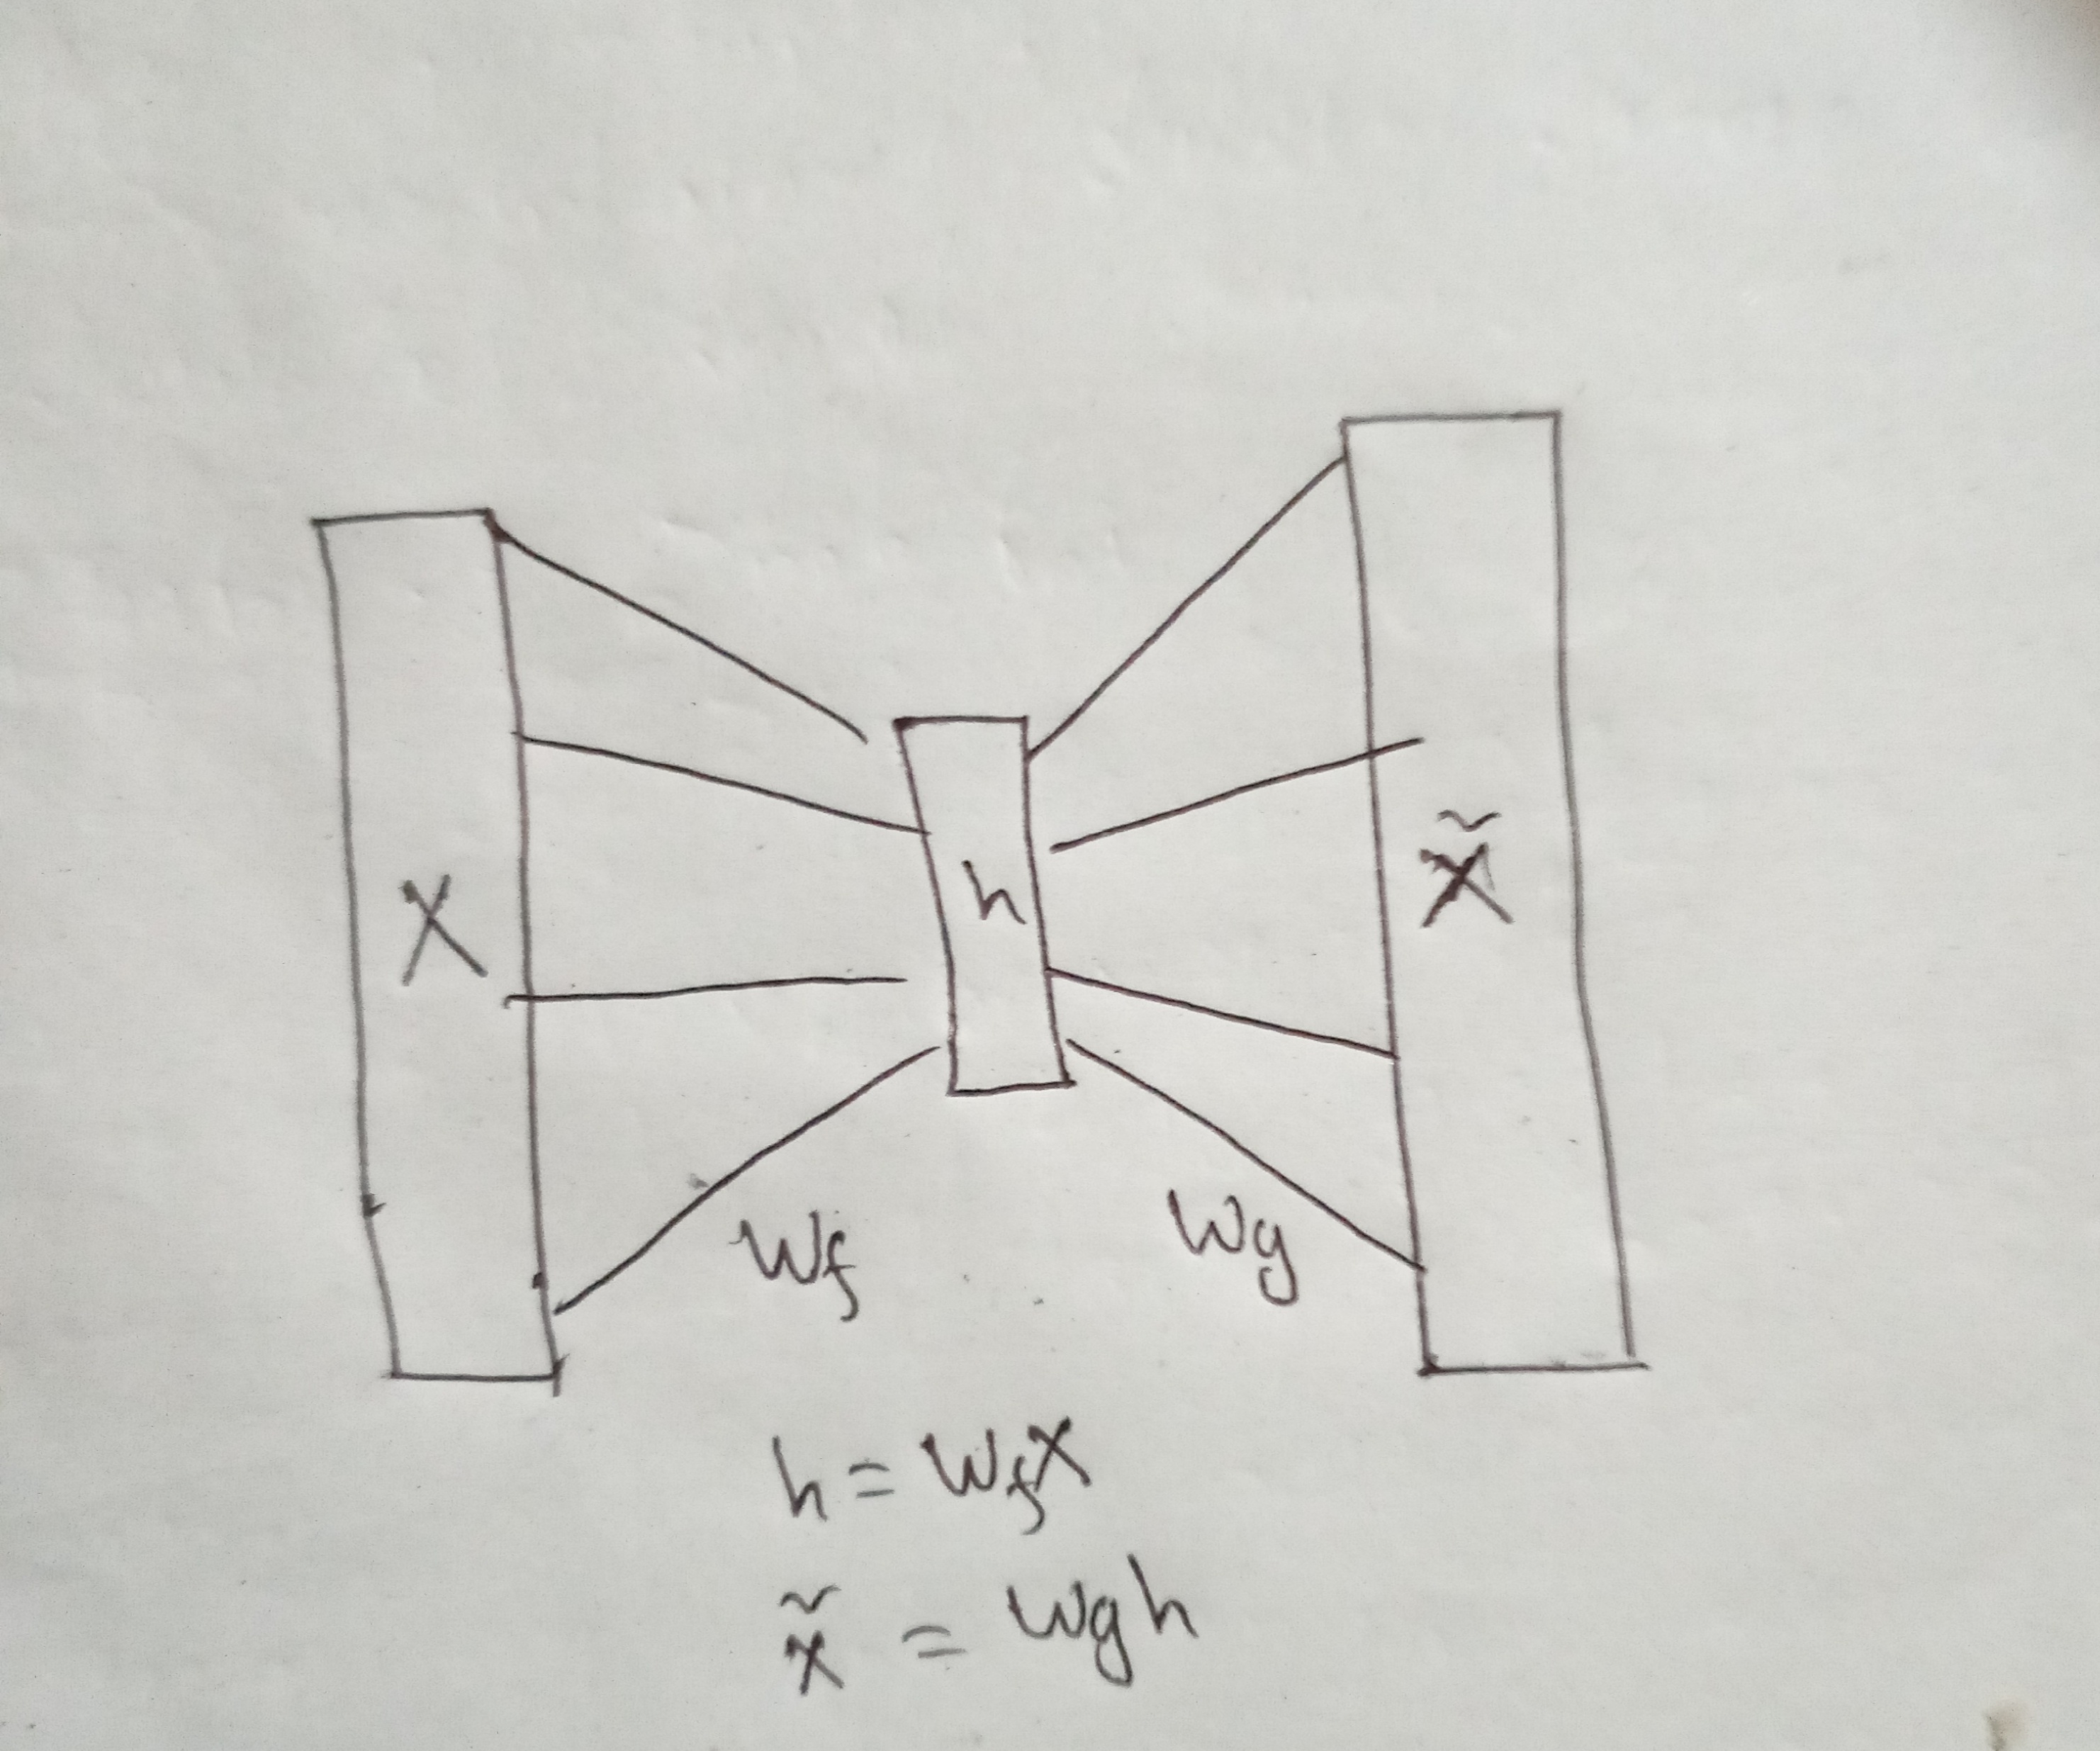 X
h
x̃
Wf
Wg
h = WfX
x̃ = Wgh